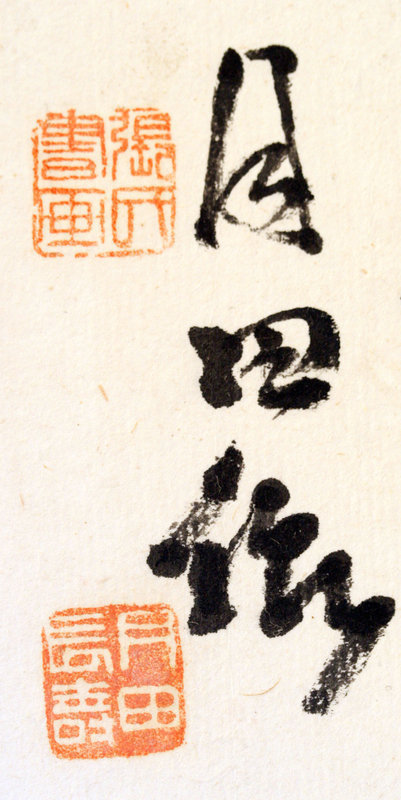 月田作
張氏
書画
月田
長壽